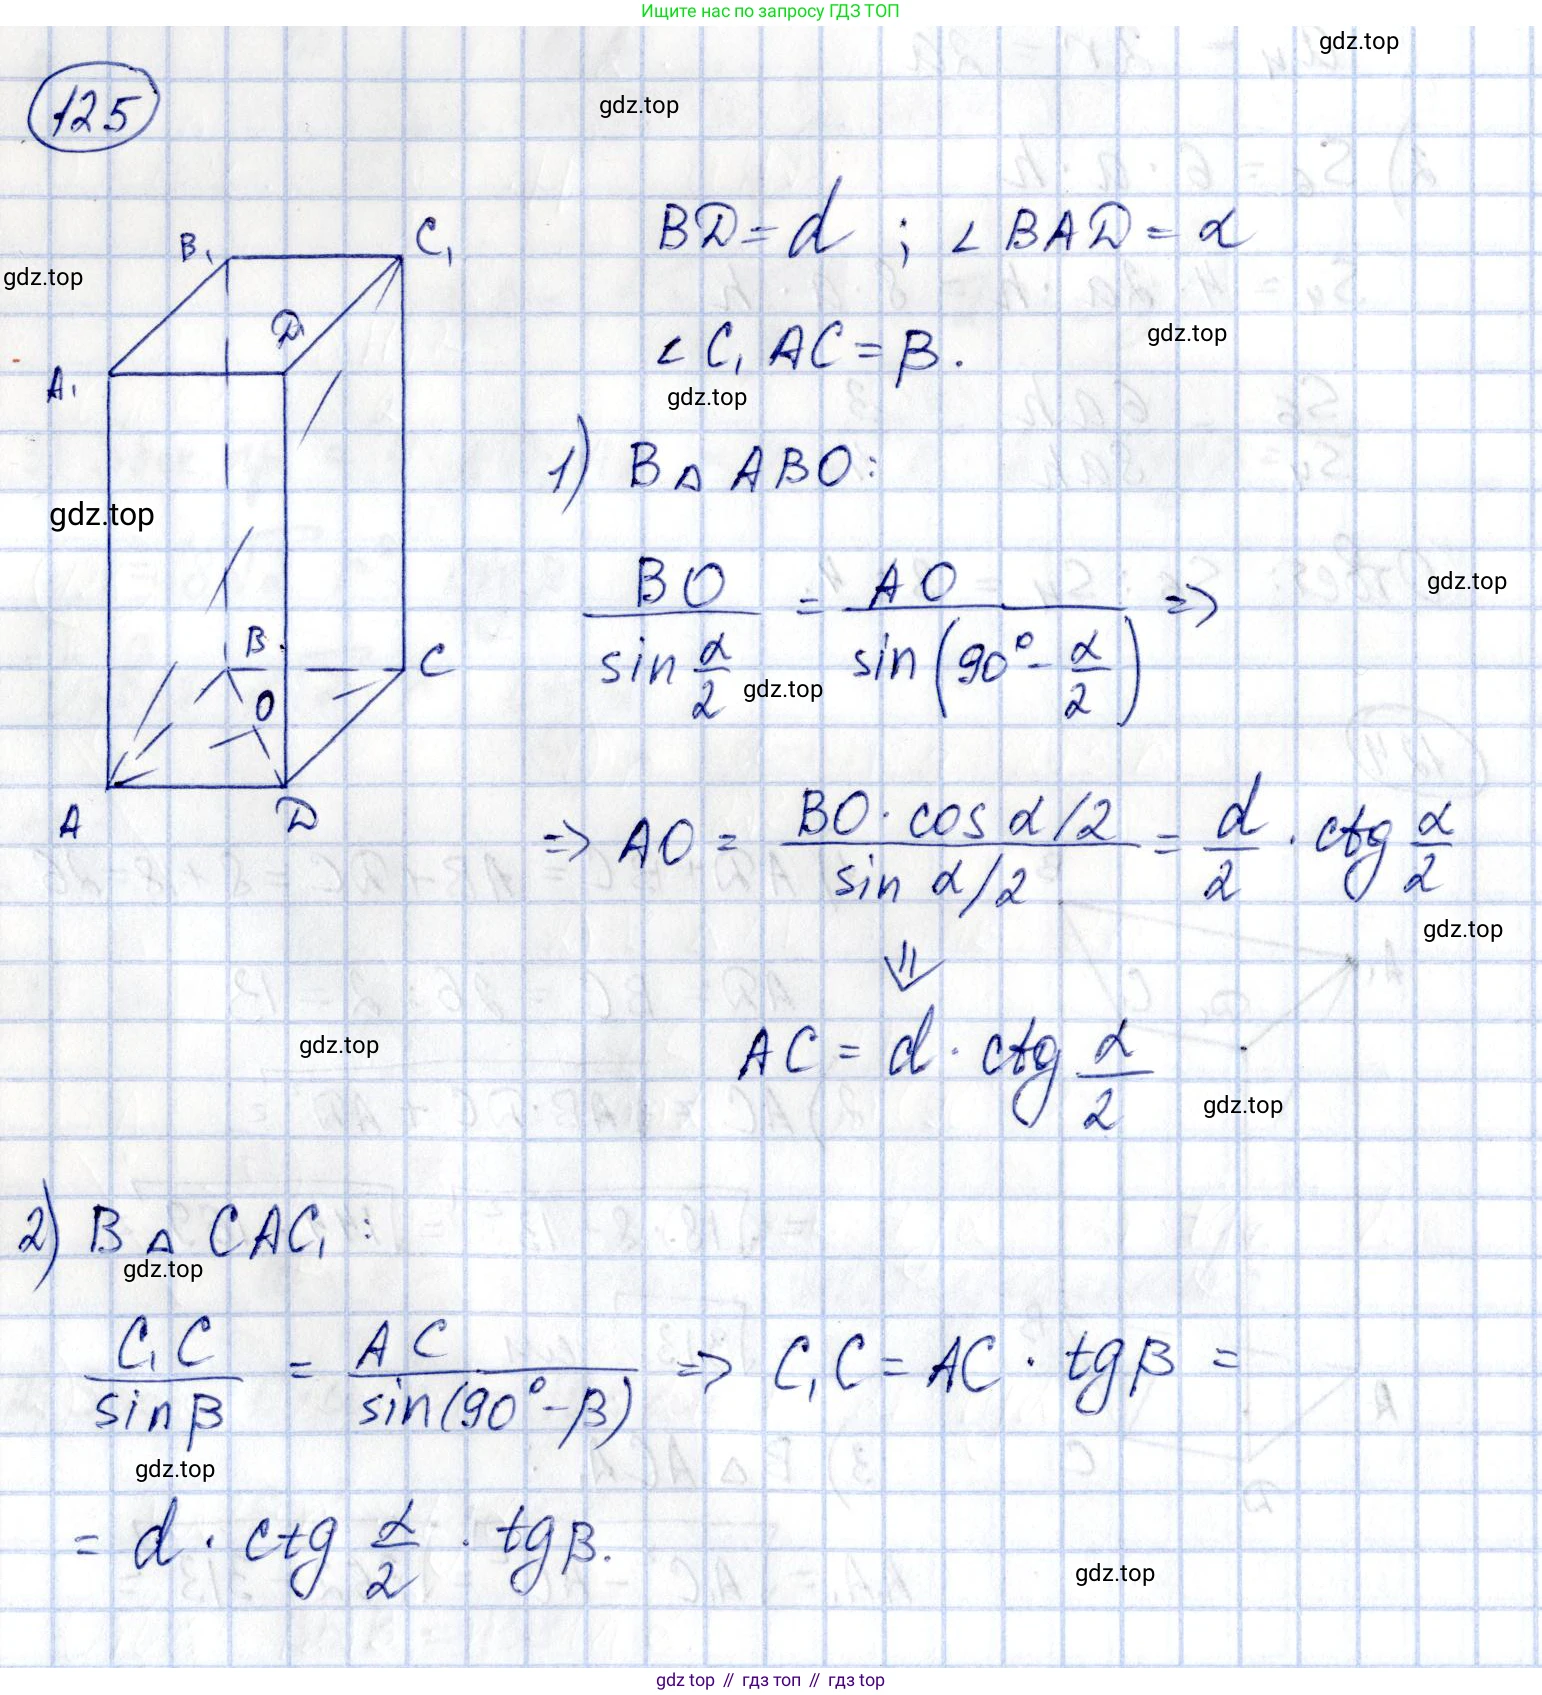 Ищите нас по запросу ГДЗ ТОП
gdz.top
125
gdz.top
BD = d ; ∠ BAD = α
B₁ C₁
gdz.top
D₁
∠ C₁AC = β.
gdz.top
A₁
gdz.top
1) В △ ABO:
gdz.top
BO / sin α/2 = AO / sin(90° - α/2) =>
gdz.top
B
C
O
gdz.top
A D
=> AO = BO · cos α/2 / sin α/2 = d/2 · ctg α/2
gdz.top
⇓
gdz.top
AC = d · ctg α/2
gdz.top
2) В △ CAC₁:
gdz.top
C₁C / sin β = AC / sin(90° - β) => C₁C = AC · tg β =
gdz.top
= d · ctg α/2 · tg β.
gdz.top
gdz top // гдз топ // gdz top